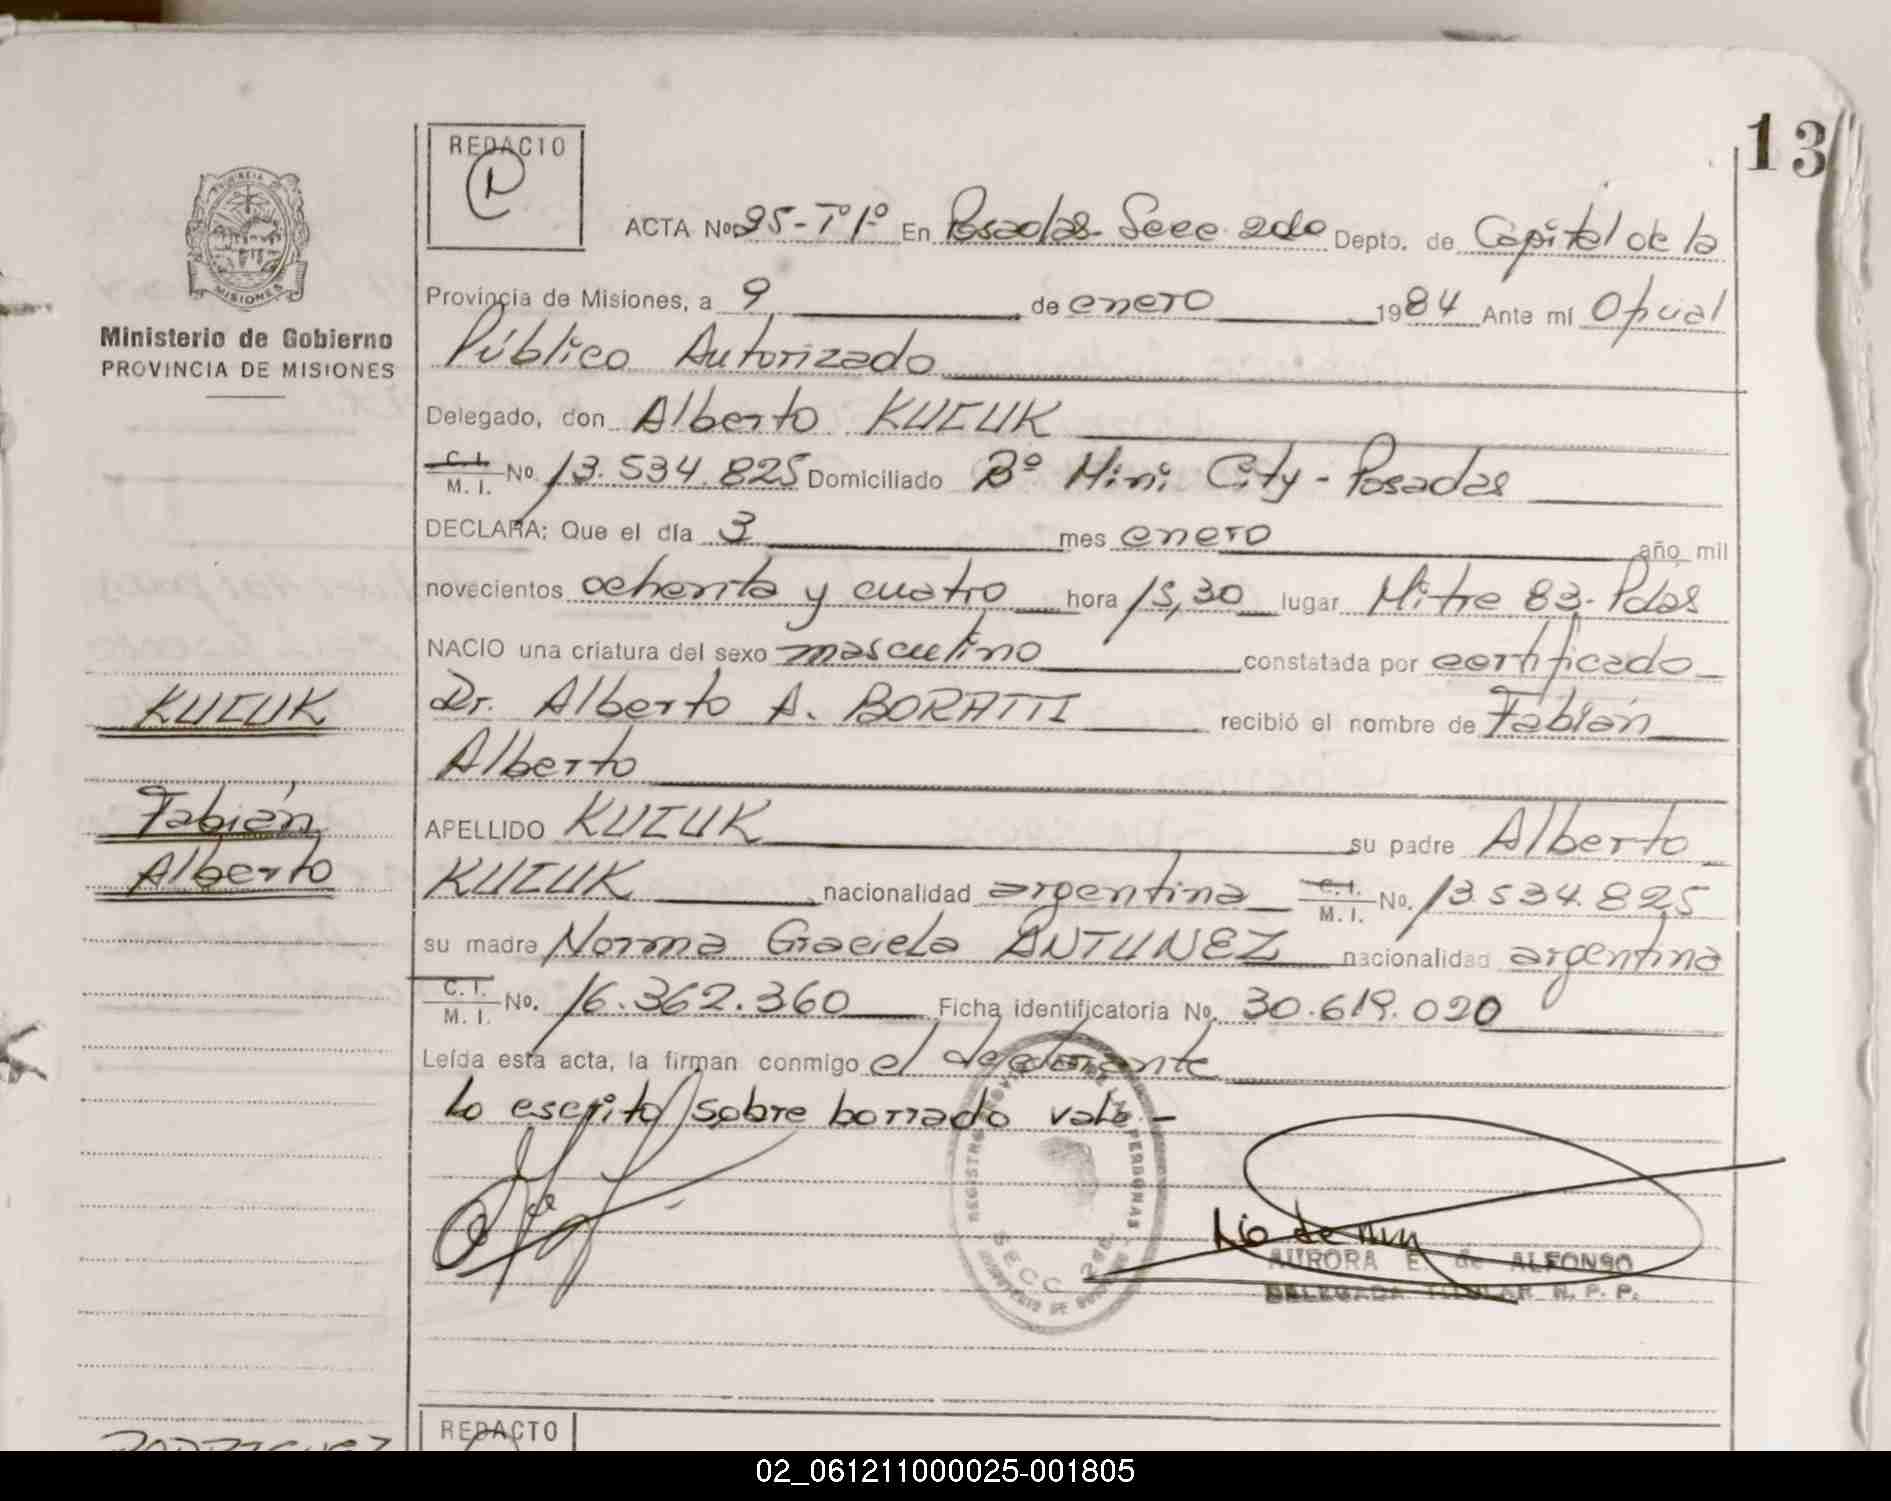 13
REDACTO
ACTA No 25-Tº 1º En Posadas Secc 2da Depto. de Capital de la
PROVINCIA
MISIONES
Ministerio de Gobierno
PROVINCIA DE MISIONES
Provincia de Misiones, a 9 de enero 1984 Ante mí Oficial
Público Autorizado
Delegado, don Alberto KUZUK
C. I. M. I. No. 13.534.825 Domiciliado Bº Mini City - Posadas
DECLARA: Que el día 3 mes enero año mil
novecientos ochenta y cuatro hora 15,30 lugar Mitre 83. Pdas
NACIO una criatura del sexo masculino constatada por certificado
KUZUK
Dr. Alberto A. BORATTI recibió el nombre de Fabián
Alberto
Fabián
Alberto
APELLIDO KUZUK su padre Alberto
KUZUK nacionalidad argentina C. I. M. I. No. 13.534.825
su madre Norma Graciela ANTUNEZ nacionalidad argentina
C. I. M. I. No. 16.362.360 Ficha identificatoria No. 30.619.020
Leída esta acta, la firman conmigo el declarante
Lo escrito sobre borrado vale -
SECC 2da
AURORA E. de ALFONSO
DELEGADA TITULAR R. P. P.
REDACTO
RODRIGUEZ
02_061211000025-001805